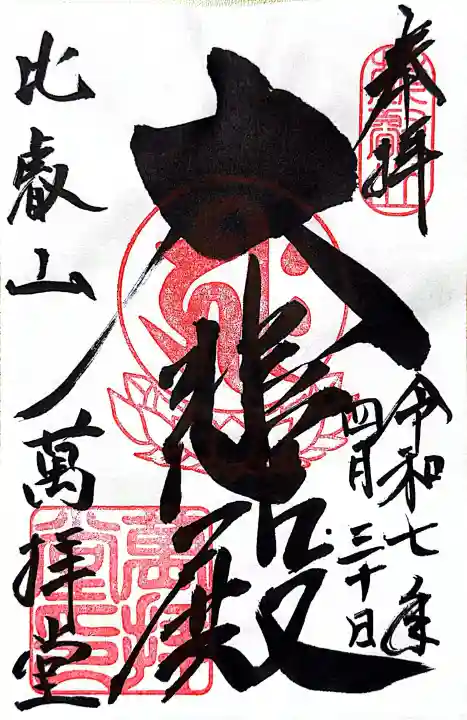 奉拝
令和七年
四月三十日
大悲殿
比叡山
萬拝堂